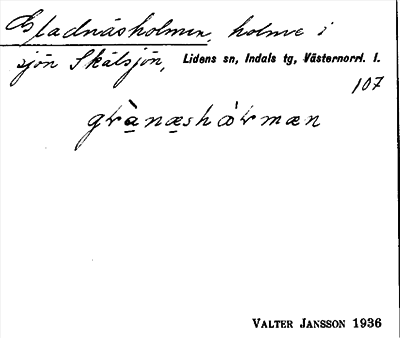 Gladnäsholmen, holme i
sjön Skälsjön, Lidens sn, Indals tg, Västernorrl. l.
107
VALTER JANSSON 1936